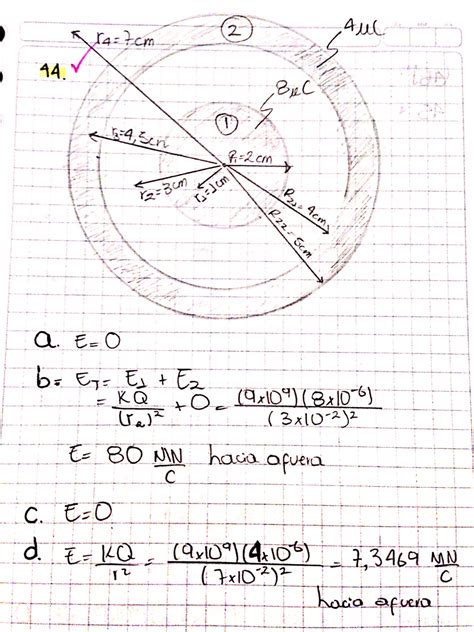 ②
4μC
r₄=7cm
44. ✓
8μC
①
r₃=4,5cm
R₁=2cm
r₂=3cm
r₁=1cm
R₂₁=4cm
R₂₂=5cm
a. E=0
b= E_T= E₁ + E₂
= KQ/(r₂)² + 0 = (9x10⁹)(8x10⁻⁶)/(3x10⁻²)²
E= 80 MN/C hacia afuera
c. E=0
d. E= KQ/r² = (9x10⁹)(4x10⁻⁶)/(7x10⁻²)² = 7,3469 MN/C
hacia afuera